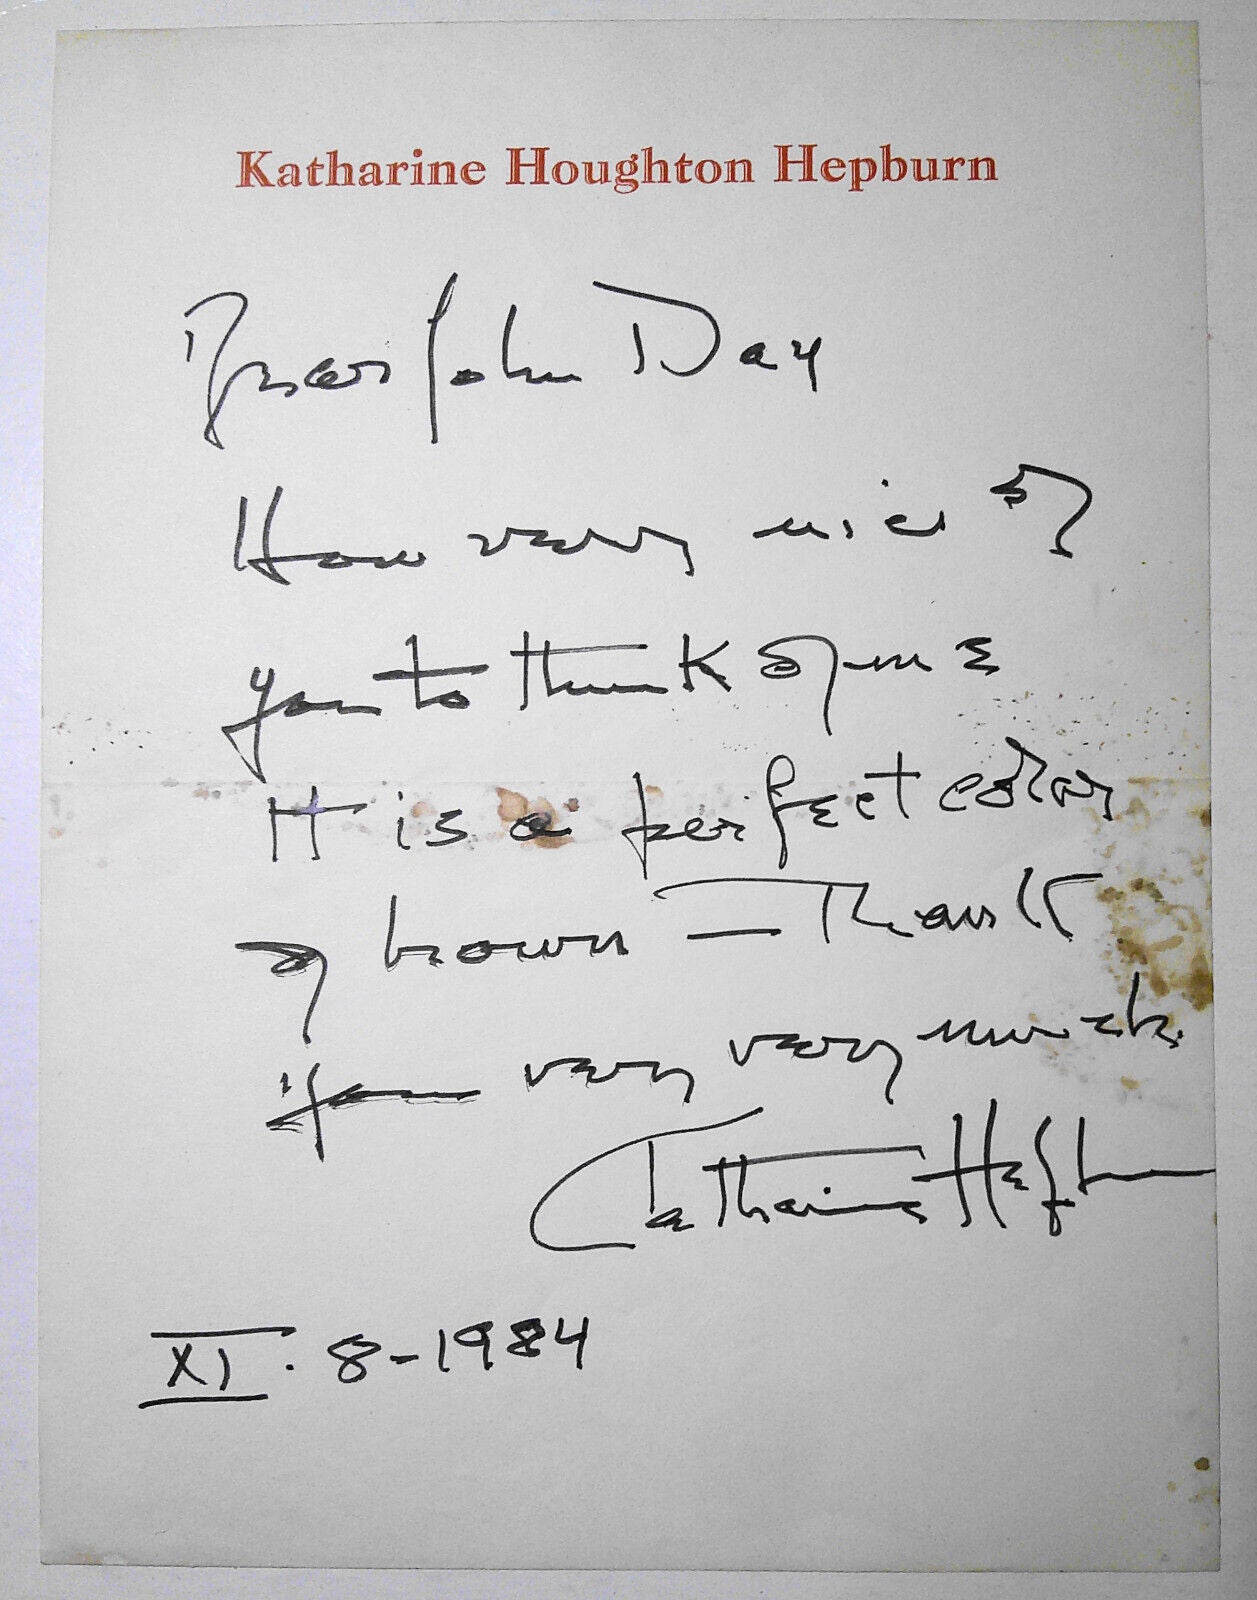 Katharine Houghton Hepburn
Dear John Day
How very nice of
you to think of me
It is a perfect color
of brown — Thank
you very very much.
Katharine Hepburn
XI. 8-1984